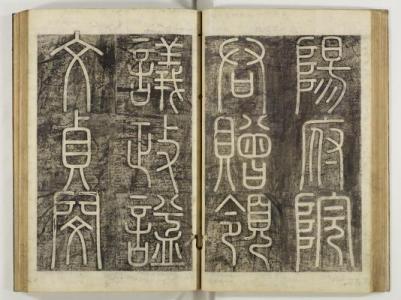 陽府院
君贈領
議政諡
文貞閔